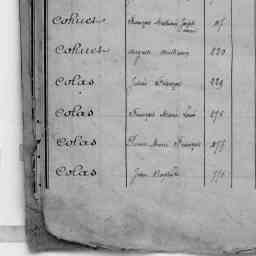 Cohues François Mathurin Joseph
Cohues August Mathurin 220
Colas Julien François 229
Colas François Marie Louis 276
Colas Pierre Marie François
Colas Jean Baptiste